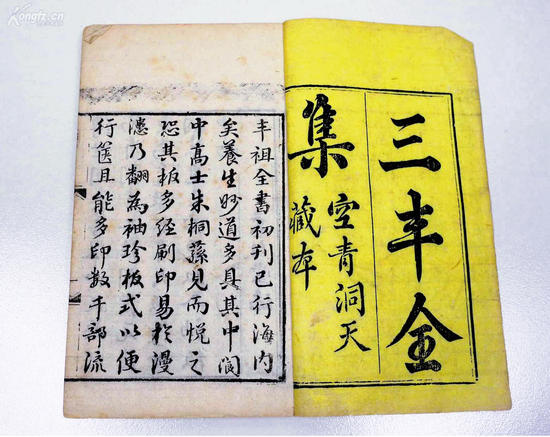 三丰全
集
空青洞天
藏本
丰祖全書初刊已行海内
矣養生妙道多具其中閬
中高士朱桐蓀見而悦之
恐其板多經刷印易於漫
漶乃翻為袖珍板式以便
行篋且能多印数千部流
Kongfz.cn